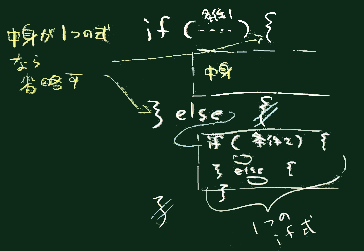 中身が1つの式
なら
省略可
if (条件1
....) {
中身
} else {
if (条件2) {
} else {
}
}
1つの
if 式